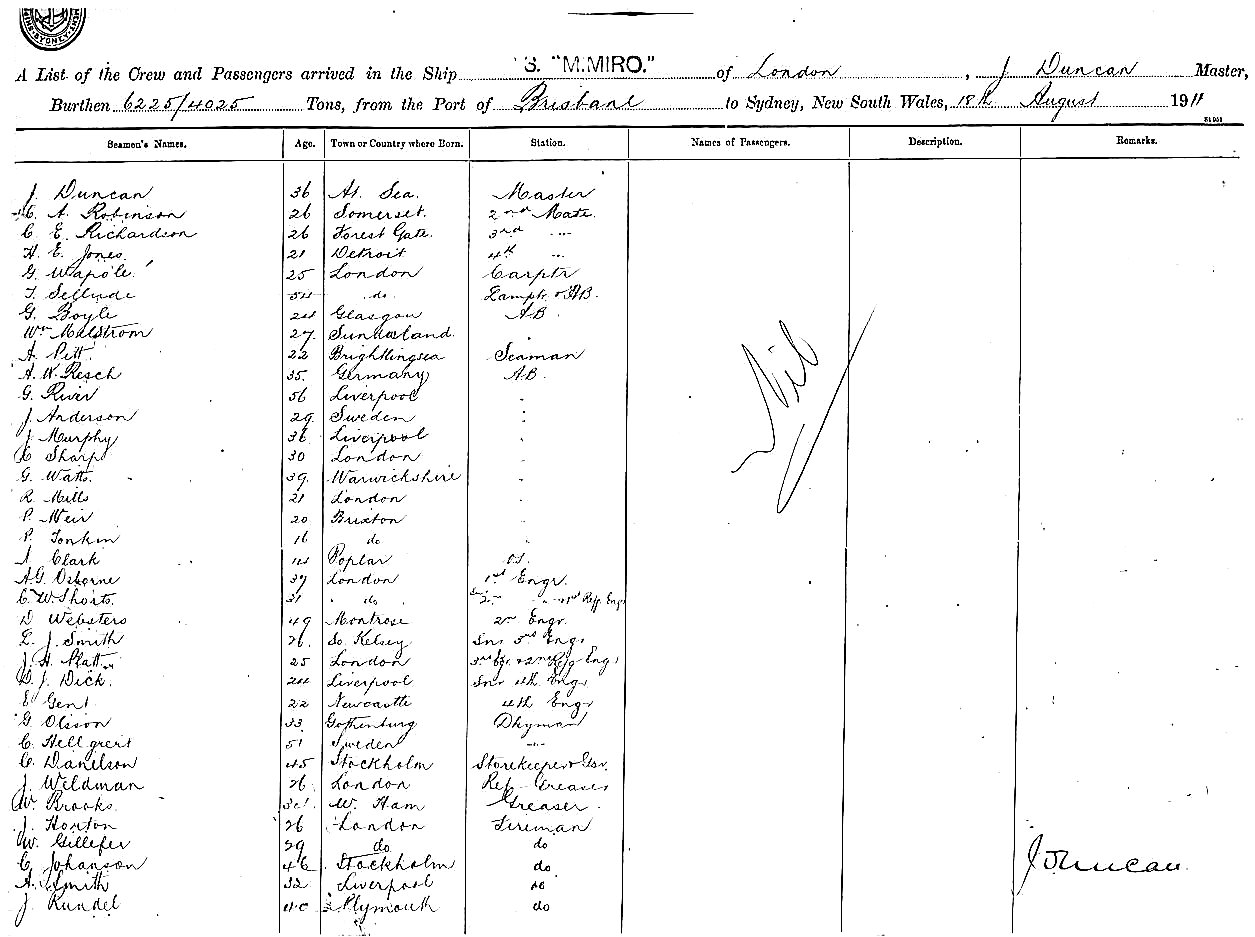 SYDNEY
S. "M.MIRO."
A List of the Crew and Passengers arrived in the Ship of London, J Duncan Master,
Burthen 6225/4025 Tons, from the Port of Brisbane to Sydney, New South Wales, 18th August 1911
Seamen's Names. Age. Town or Country where Born. Station. Names of Passengers. Description. Remarks.
J. Duncan 36 At Sea. Master
A. Robinson 26 Somerset. 2nd Mate.
C. E. Richardson 26 Forest Gate. 3rd "
H. E. Jones. 21 Detroit 4th "
G. Wapole. 25 London Carptr
T. 54 do. Lamptr & AB.
G. Boyle 24 Glasgow AB.
Wm Malstrom 27. Sunderland.
A. Pitt. 22 Brightlingsea Seaman
A. W. Resch 35. Germany AB.
G. River 56 Liverpool "
J. Anderson 29 Sweden "
J. Murphy 36 Liverpool "
C Sharp 30 London "
G. Watts. 39. Warwickshire "
R. Mills 21 London "
P. Weir 20 Brixton "
P. Tonkin 16 do "
Clark Poplar O.S.
A.G. Osborne 37 London 1st Engr.
C. W. Shorts. 31 " do Refg. Engr
D Websters 49 Montrose 2nd Engr.
L. J. Smith 26. So. Kelsey Snr 3rd Engr
J. H. Platt 25 London 3rd Refg Engr
D. J. Dick. 24 Liverpool Snr 4th Engr
E Gent 22 Newcastle 4th Engr
G. Olsson 33. Gothenburg Dkyman
C. Hellgreit 51 Sweden "
C. Danelson 45 Stockholm Storekeeper & Gsr.
J. Weldman 26. London Ref Greaser
W. Brooks. W. Ham Greaser.
J. Horton 26 London Fireman
W. Gillefer 29 do do
C. Johanson 46 Stockholm do
A. Smith 32 Liverpool do
J. Rundel 40 Plymouth do
Nil
J Duncan.